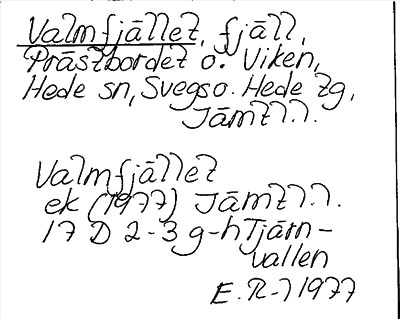 Valmfjället, fjäll,
Prästbordet o. Viken,
Hede sn, Svegs o. Hede tg,
Jämtl.l.
Valmfjället
ek (1977) Jämtl.l.
17 D 2-3 g-h Tjärn-
vallen
E. R-l 1977